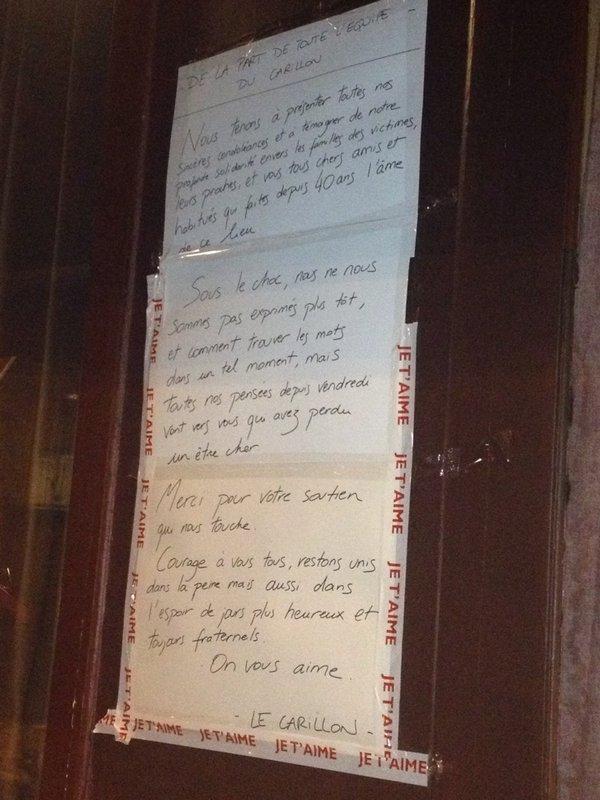 - DE LA PART DE TOUTE L'EQUIPE -
DU CARILLON
Nous tenons à présenter toutes nos
sincères condoléances et à témoigner de notre
profonde solidarité envers les familles des victimes,
leurs proches, et vous tous chers amis et
habitués qui faites depuis 40 ans l'âme
de ce lieu
Sous le choc, nous ne nous
sommes pas exprimés plus tôt,
et comment trouver les mots
dans un tel moment, mais
toutes nos pensées depuis vendredi
vont vers vous qui avez perdu
un être cher
Merci pour votre soutien
qui nous touche.
Courage à vous tous, restons unis
dans la peine mais aussi dans
l'espoir de jours plus heureux et
toujours fraternels.
On vous aime.
- LE CARILLON -
JE T'AIME
JE T'AIME
JE T'AIME
JE T'AIME
JE T'AIME
JE T'AIME
JE T'AIME
JE T'AIME
JE T'AIME
JE T'AIME JE T'AIME JE T'AIME JE T'AIME